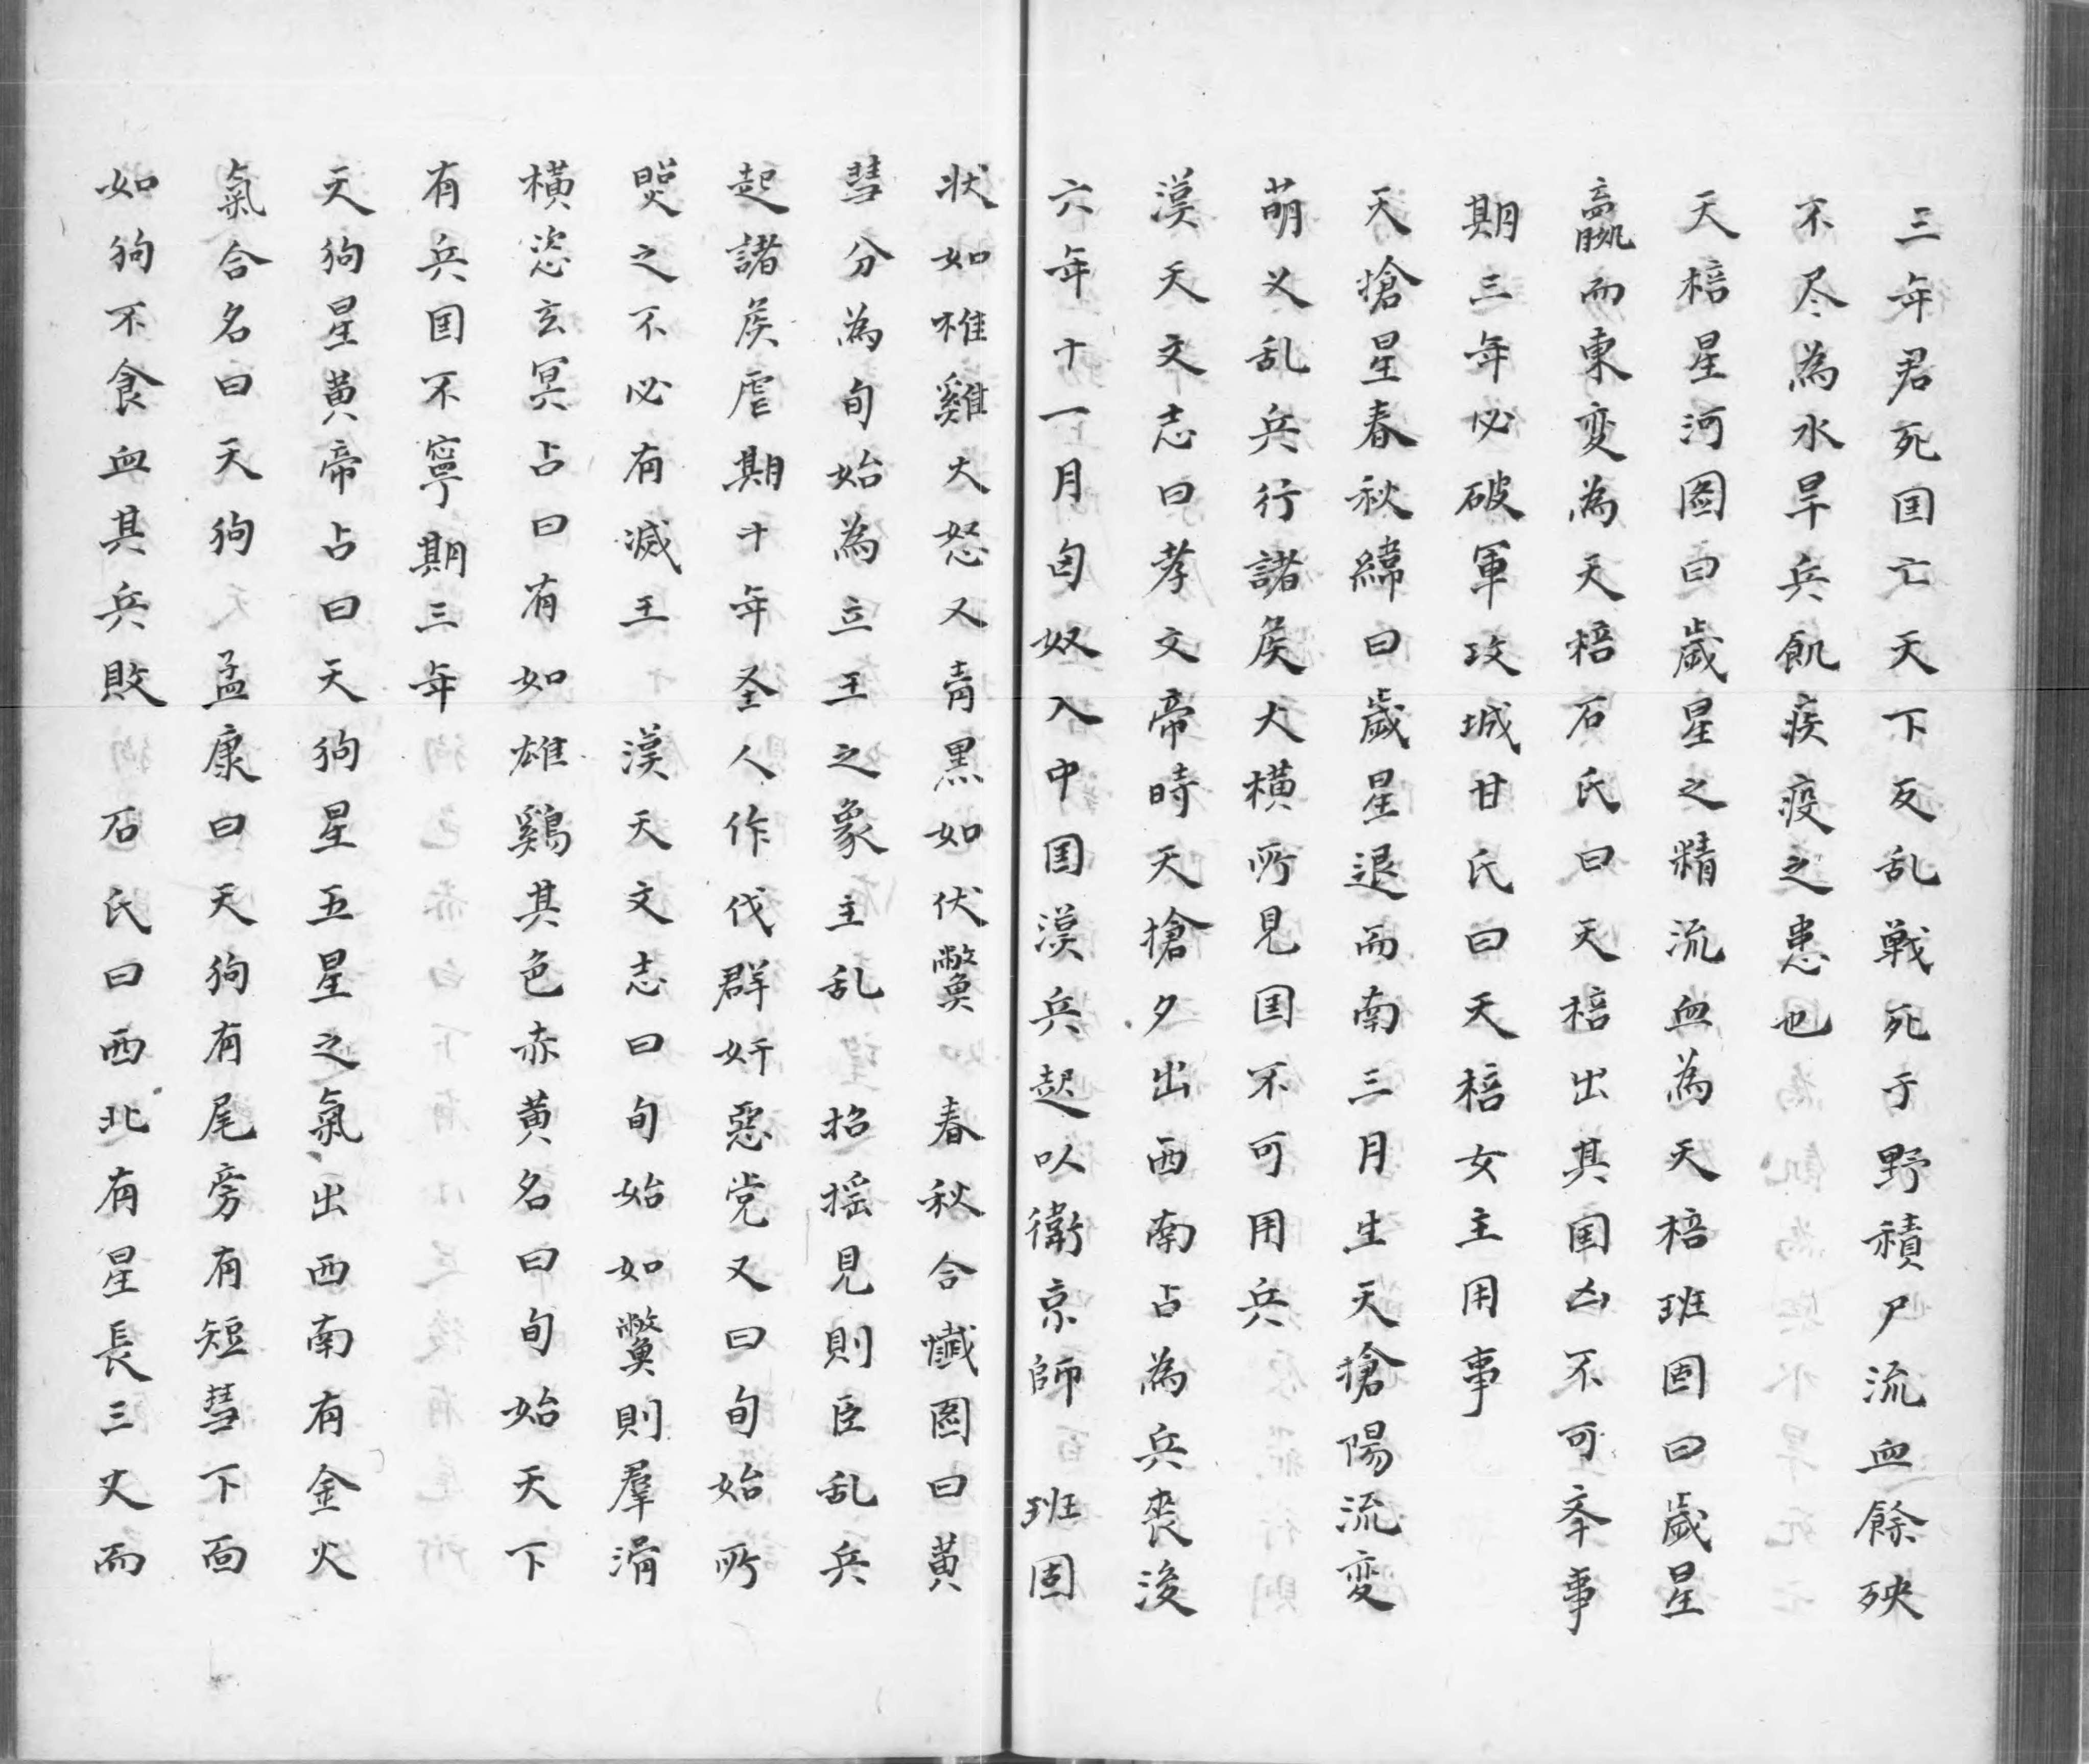 三年君死国亡天下反乱戦死于野積尸流血餘殃
不尽為水旱兵飢疾疫之患也
天棓星河圖曰歲星之精流血為天棓班固曰歲星
嬴而東変為天棓石氏曰天棓出其国凶不可夲事
期三年必破軍攻城甘氏曰天棓女主用事
天搶星春秋緯曰歲星退而南三月生天搶陽流変
萌乂乱兵行諸侯大横所見国不可用兵
漢天文志曰孝文帝時天搶夕出西南占為兵喪後
六年十一月匈奴入中国漢兵起以衛京師 班固
状如唯雞大怒又青黒如伏鼈 春秋合懴圖曰黄
彗分為旬始為立王之象主乱 招揺見則臣乱兵
起諸侯虐期十年圣人作伐群奸惡党又曰旬始所
煛之不必有滅王 漢天文志曰旬始如鼈則羣滑
横恣玄冥占曰有如雄鷄其色赤黄名曰旬始天下
有兵国不寧期三年
天狗星黄帝占曰天狗星五星之氣出西南有金火
氣合名曰天狗 孟康曰天狗有尾旁有短彗下面
如狗不食血其兵敗 石氏曰西北有星長三丈而